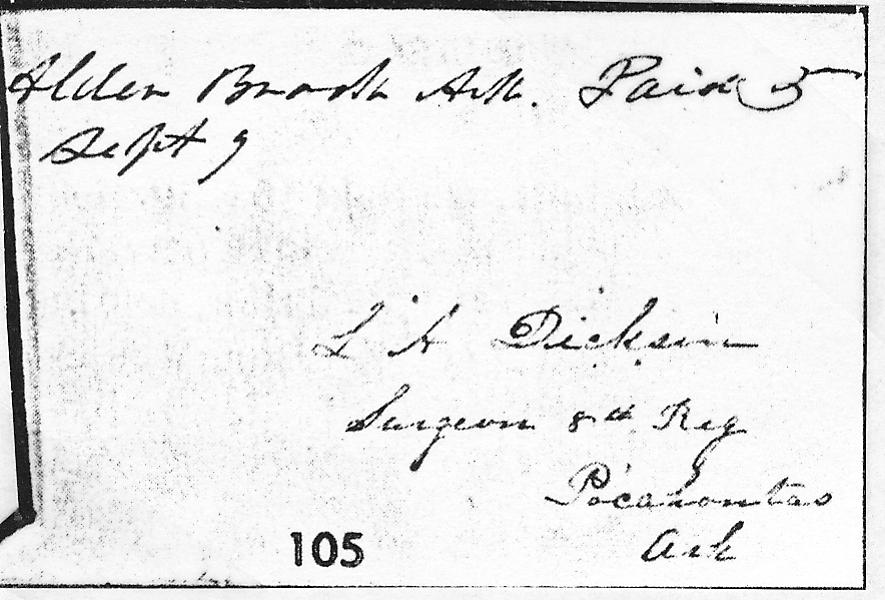 Alder Brook Ark. Paid 5
Sept 9
L A Dickson
Surgeon 8th Reg
Pocahontas
Ark
105